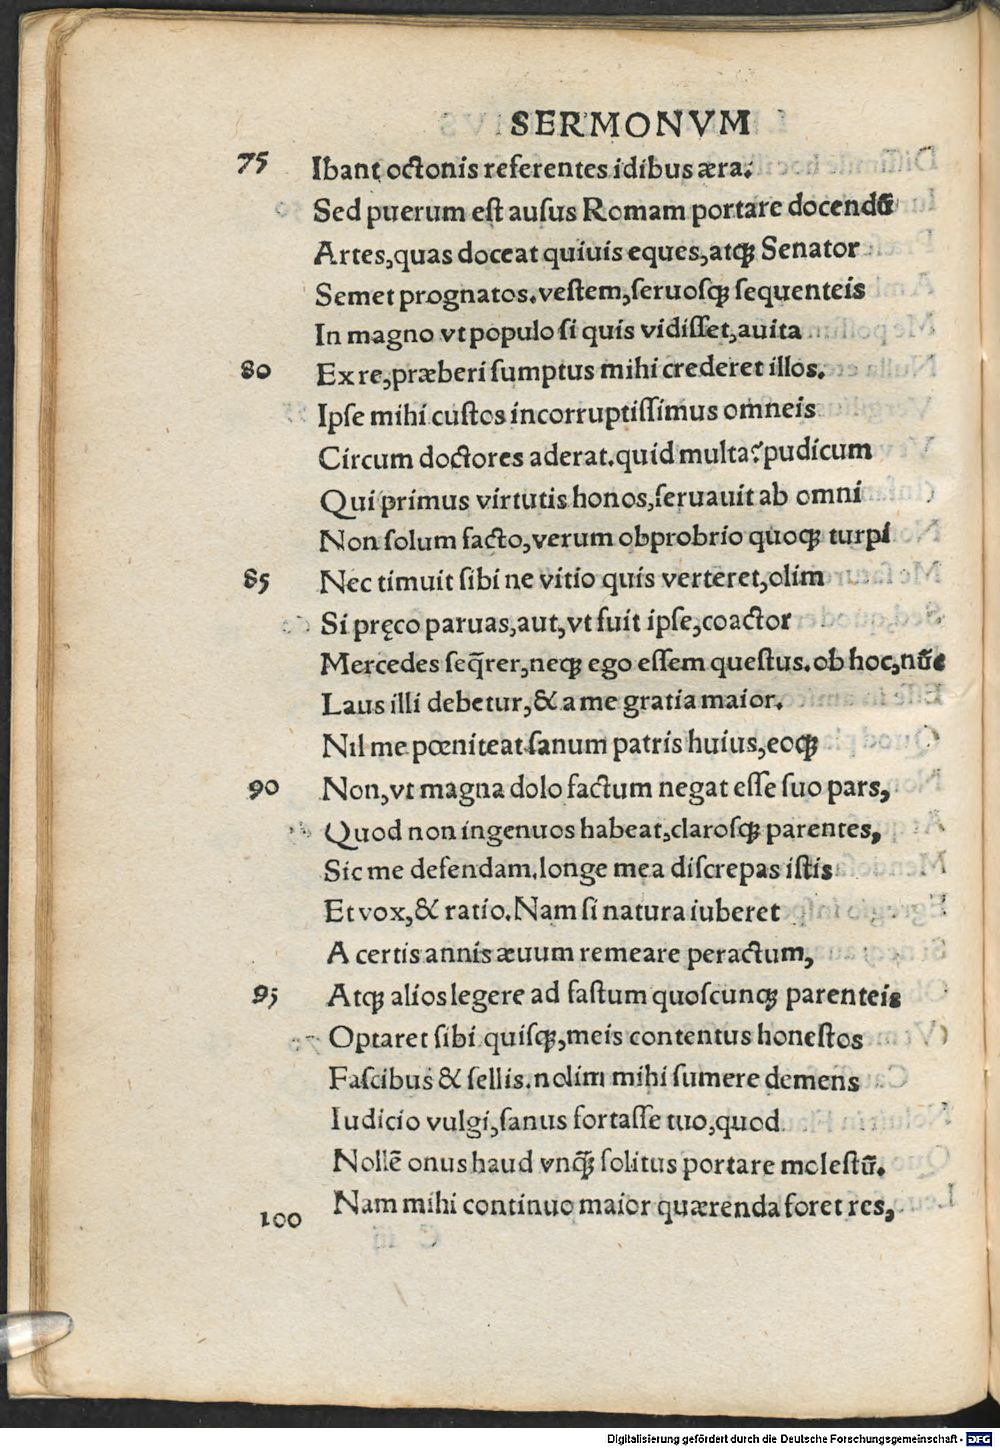 SERMONVM
75 Ibant octonis referentes idibus æra.
Sed puerum est ausus Romam portare docendũ
Artes, quas doceat quiuis eques, atqꝫ Senator
Semet prognatos. vestem, seruosqꝫ sequenteis
In magno vt populo si quis vidisset, auita
80 Ex re, præberi sumptus mihi crederet illos.
Ipse mihi custos incorruptissimus omneis
Circum doctores aderat. quid multa? pudicum
Qui primus virtutis honos, seruauit ab omni
Non solum facto, verum obprobrio quoqꝫ turpi
85 Nec timuit sibi ne vitio quis verteret, olim
Si pręco paruas, aut, vt fuit ipse, coactor
Mercedes seq̃rer, neqꝫ ego essem questus. ob hoc, nũc
Laus illi debetur, & a me gratia maior.
Nil me pœniteat sanum patris huius, eoqꝫ
90 Non, vt magna dolo factum negat esse suo pars,
Quod non ingenuos habeat, clarosqꝫ parentes,
Sic me defendam. longe mea discrepas istis
Et vox, & ratio. Nam si natura iuberet
A certis annis æuum remeare peractum,
95 Atqꝫ alios legere ad fastum quoscunqꝫ parenteis
Optaret sibi quisqꝫ, meis contentus honestos
Fascibus & sellis. nolim mihi sumere demens
Iudicio vulgi, sanus fortasse tuo, quod
Nollẽ onus haud vnqꝫ̃ solitus portare molestũ.
100 Nam mihi continuo maior quærenda foret res,
Digitalisierung gefördert durch die Deutsche Forschungsgemeinschaft - DFG